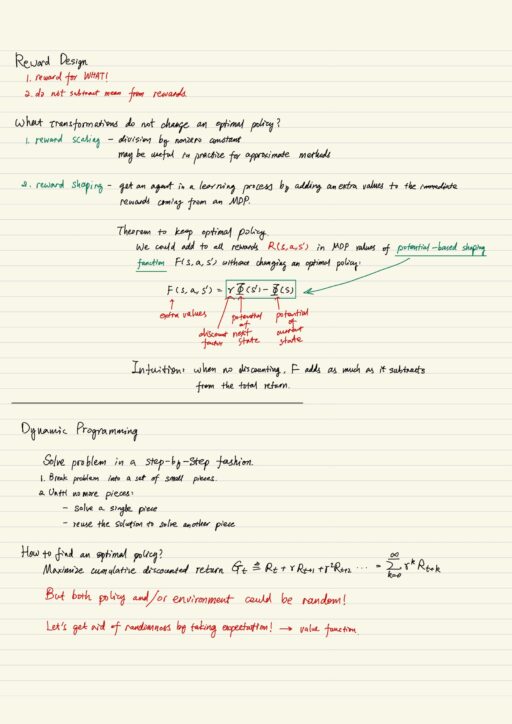 Reward Design
1. reward for WHAT!
2. do not subtract mean from rewards
What transformations do not change an optimal policy?
1. reward scaling - division by nonzero constant
may be useful in practice for approximate methods
2. reward shaping - get an agent in a learning process by adding an extra values to the immediate
rewards coming from an MDP.
Theorem to keep optimal policy.
We could add to all rewards R(s,a,s') in MDP values of potential-based shaping
function F(s,a,s') without changing an optimal policy:
F(s,a,s') = γΦ(s') - Φ(s)
extra values
discount factor
potential of next state
potential of current state
Intuition: when no discounting, F adds as much as it subtracts
from the total return.
Dynamic Programming
Solve problem in a step-by-step fashion.
1. Break problem into a set of small pieces.
2. Until no more pieces:
- solve a single piece
- reuse the solution to solve another piece
How to find an optimal policy?
Maximize cumulative discounted return G_t ≜ R_t + γR_{t+1} + γ²R_{t+2} ... = Σ_{k=0}^{∞} γ^k R_{t+k}
But both policy and/or environment could be random!
Let's get rid of randomness by taking expectation! → value function.